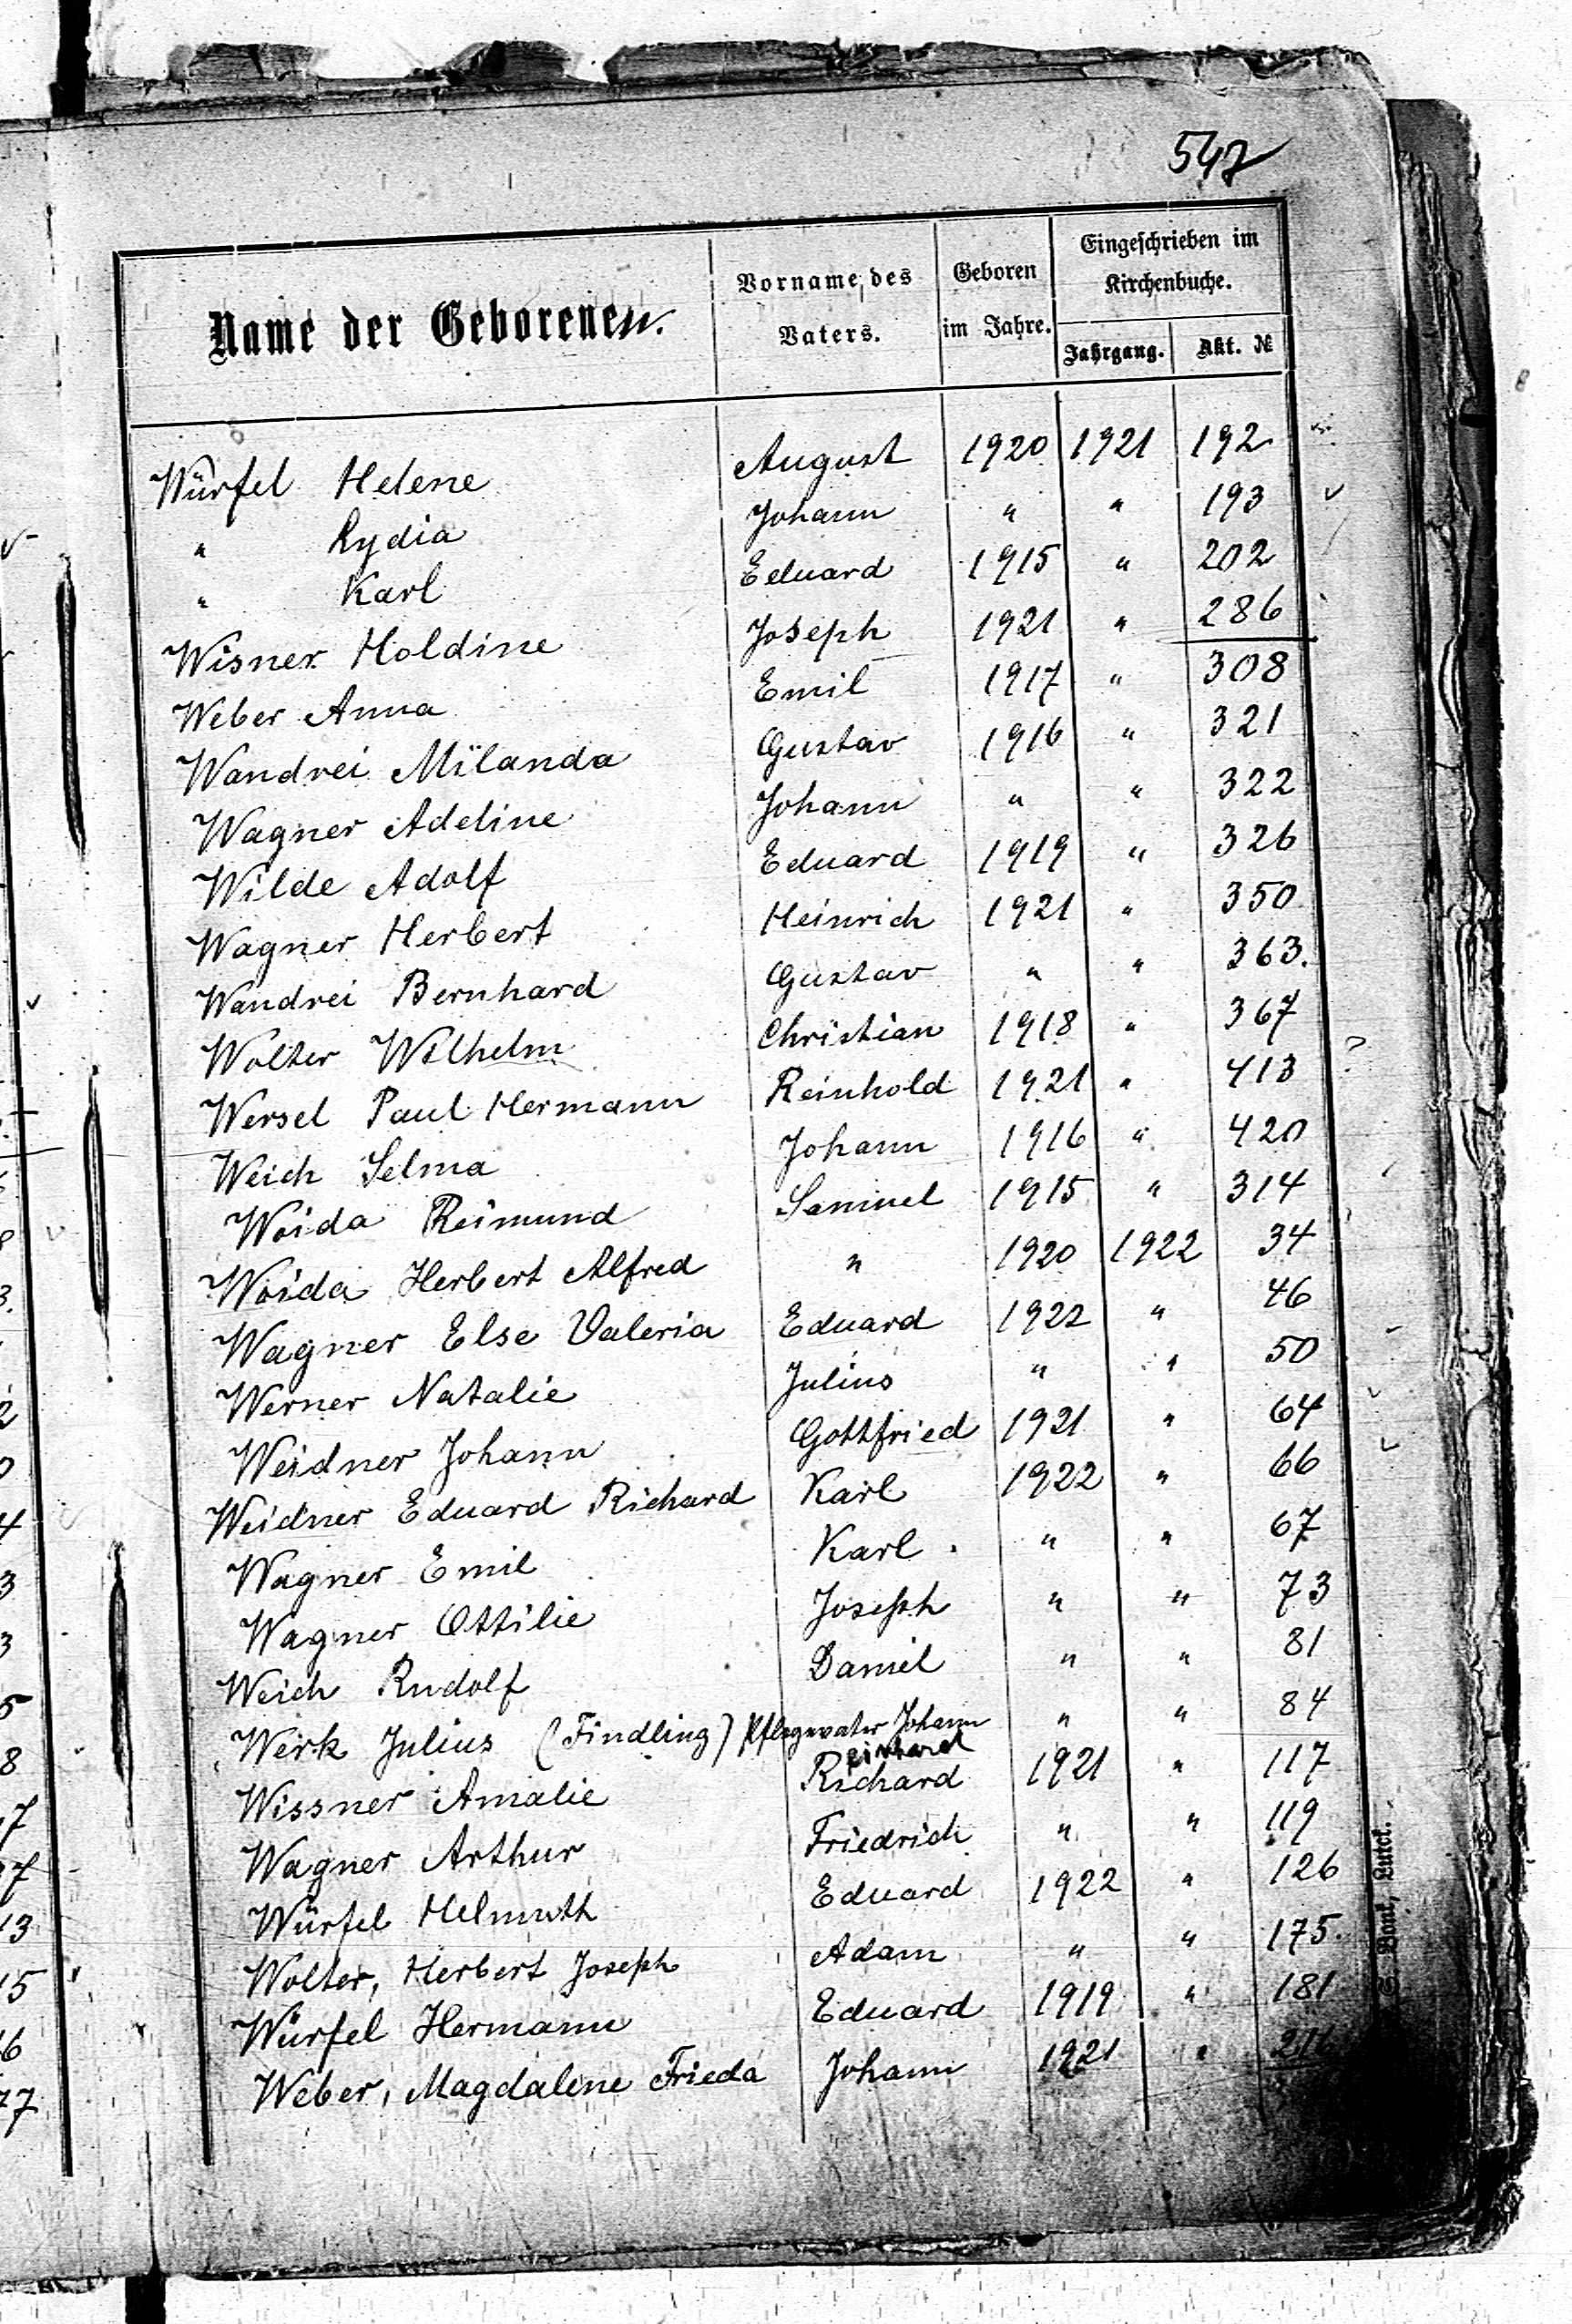 547
Name der Geborenen. Vorname des Vaters. Geboren im Jahre. Eingeschrieben im Kirchenbuche.
Jahrgang. Akt. №
Würfel Helene August 1920 1921 192
" Lydia Johann " " 193
" Karl Eduard 1915 " 202
Wisner Holdine Joseph 1921 " 286
Weber Anna Emil 1917 " 308
Wandrei Milanda Gustav 1916 " 321
Wagner Adeline Johann " " 322
Wilde Adolf Eduard 1919 " 326
Wagner Herbert Heinrich 1921 " 350
Wandrei Bernhard Gustav " " 363.
Wolter Wilhelm Christian 1918 " 367
Wersel Paul Hermann Reinhold 1921 " 413 ?
Weich Selma Johann 1916 " 420
Woida Reimund Samuel 1915 " 314
Woida Herbert Alfred " 1920 1922 34
Wagner Else Valeria Eduard 1922 " 46
Werner Natalie Julius " " 50
Weidner Johann Gottfried 1921 " 64
Weidner Eduard Richard Karl 1922 " 66
Wagner Emil Karl " " 67
Wagner Ottilie Joseph " " 73
Weich Rudolf Daniel " " 81
Werk Julius (Findling) Pflegevater Johann " " 84
Wissner Amalie Richard 1921 " 117
Wagner Arthur Friedrich " " 119
Würfel Helmuth Eduard 1922 " 126
Wolter, Herbert Joseph Adam " " 175.
Würfel Hermann Eduard 1919 " 181
Weber, Magdalene Frieda Johann 1921 " 216